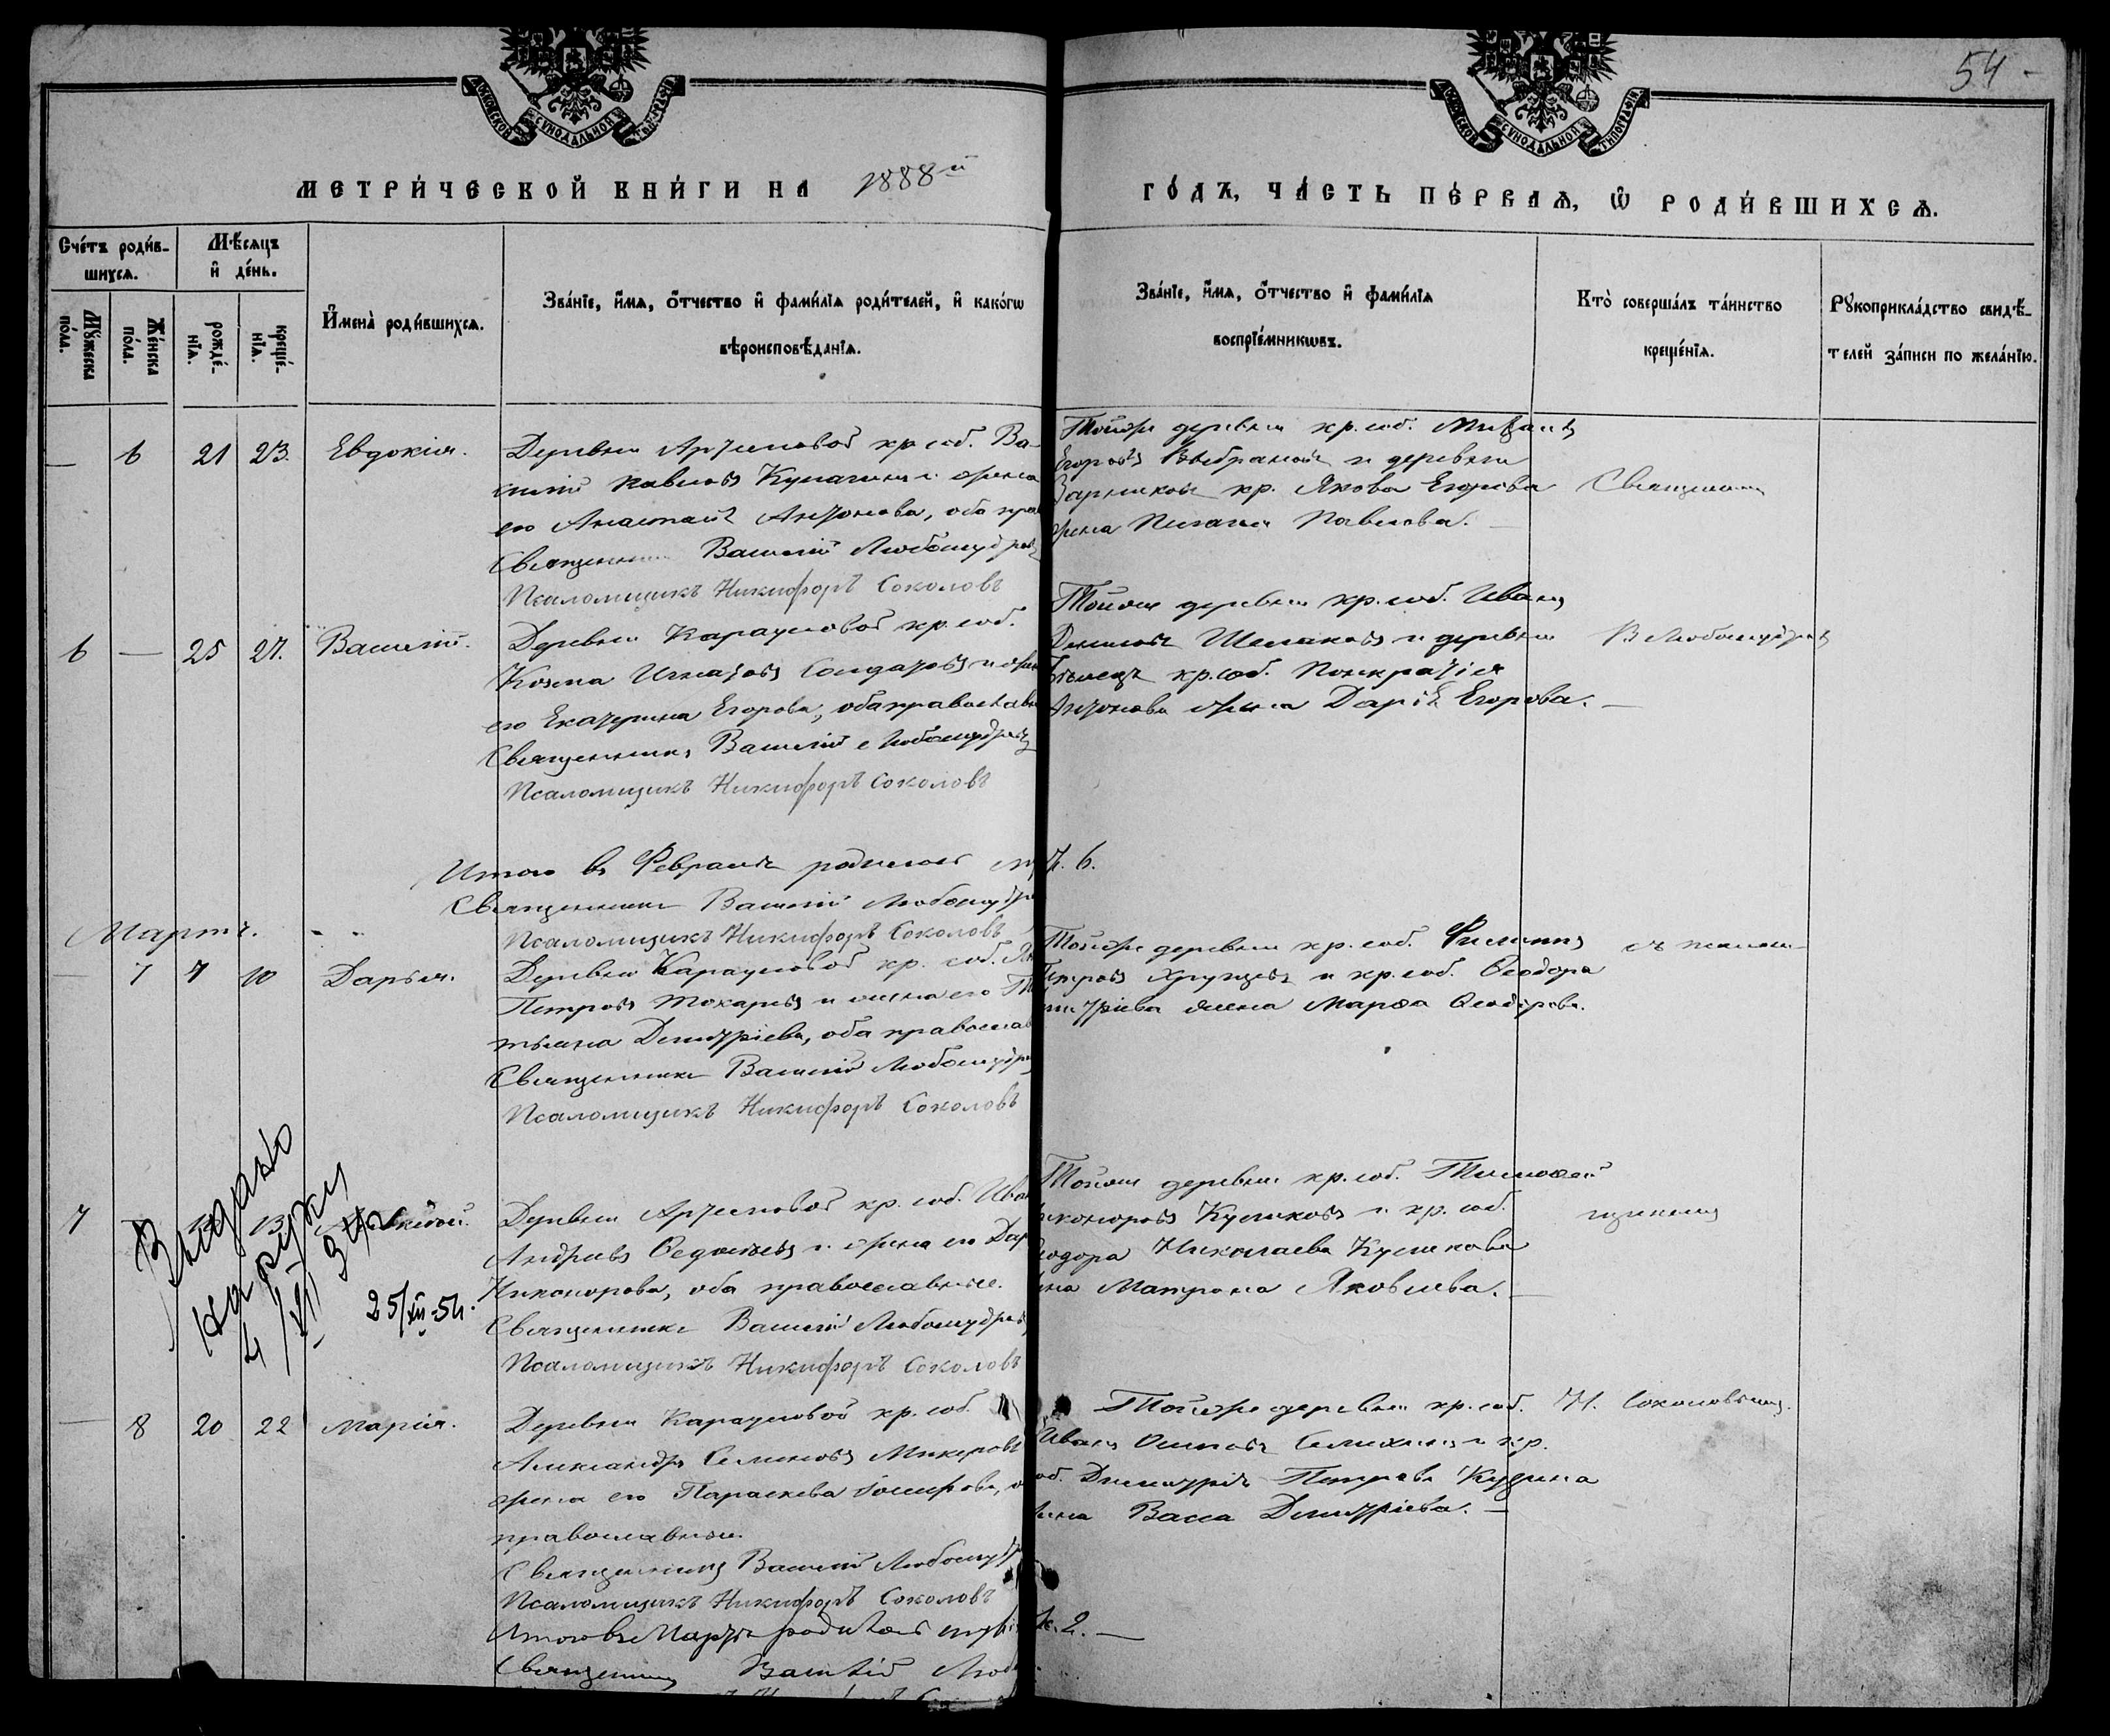 54
МОСКОВСКОЙ СѴНОДАЛЬНОЙ ТИПОГРАФІИ
МЕТРИ́ЧЕСКОЙ КНИ́ГИ НА 1888й
ГО́ДЪ, ЧА́СТЬ ПЕ́РВАѦ, Ѡ҆ РОДИ́ВШИХСѦ.
Сче́тъ роди́в-
шихсѧ.
Мѣ́сѧцъ
и҆ де́нь.
Мꙋ́жеска
по́ла.
Же́нска
по́ла.
рожде́-
нїѧ.
креще́-
нїѧ.
И҆мена̀ роди́вшихсѧ.
Зва́нїе, и҆́мѧ, ѻ҆́тчество и҆ фами́лїѧ роди́телей, и҆ како́гѡ
вѣроисповѣ́данїѧ.
Зва́нїе, и҆́мѧ, ѻ҆́тчество и҆ фами́лїѧ
воспрїе́мникѡвъ.
Кто̀ соверша́лъ та́инство
креще́нїѧ.
Рꙋкоприкла́дство свидѣ́-
телей за́писи по жела́нїю.
— 6 21 23. Евдокія.
Деревни Артемовой кр. соб. Ва-
силій Павловъ Кулагинъ и жена
его Анастасія Антонова, оба пра
Священникъ Василій Любомудровъ
Псаломщикъ Никифоръ Соколовъ
Тойже деревни кр. соб. Михаилъ
Егоровъ и деревни
кр. Якова Егорова
жена Пелагія Павлова. —
Священник
6 — 25 27. Василій.
Деревни Карауловой кр. соб.
Козма Игнатовъ Солдатовъ и жена
его Екатерина Егорова, оба православн
Священникъ Василій Любомудровъ
Псаломщикъ Никифоръ Соколовъ
Тойже деревни кр. соб. Иванъ
и деревни
кр. соб. Панкратія
Антонова жена Дарія Егорова. —
В Любомудровъ
Итого въ Февралѣ родилось м
ж. 6.
Священникъ Василій Любомудро
Псаломщикъ Никифоръ Соколовъ
Мартъ.
— 7 7 10 Дарья.
Деревни Карауловой кр. соб.
Петровъ Токаревъ и жена его Та
тьяна Димитріева, оба православ
Священникъ Василій Любомудров
Псаломщикъ Никифоръ Соколовъ
Тойже деревни кр. соб. Филиппъ
Петровъ и кр. соб. Ѳеодора
Димитріева жена Марѳа Ѳеодорова.
съ псалом-
7
Выдано
на руки
25/XII-54.
Деревни Артемовой кр. соб. Иван
Андреевъ Ѳедотовъ и жена его Дар
Никонорова, оба православные.
Священникъ Василій Любомудровъ
Псаломщикъ Никифоръ Соколовъ
Тойже деревни кр. соб. Тимоѳей
Никоноровъ Куликовъ и кр. соб.
Ѳеодора Николаева Куликова
жена Матрона Яковлева. —
щикомъ
— 8 20 22 Марія.
Деревни Карауловой кр. соб.
Александръ Семеновъ
жена его Параскева Іосифова, о
православные.
Священникъ Василій Любомудр
Псаломщикъ Никифоръ Соколовъ
Тойже деревни кр. соб.
Иванъ Осиповъ и кр.
соб. Димитрія Петрова
жена Васса Димитріева. —
Н. Соколовымъ.
Итого въ Мартѣ родилось
ж. 2. —
Священникъ Василій Люб